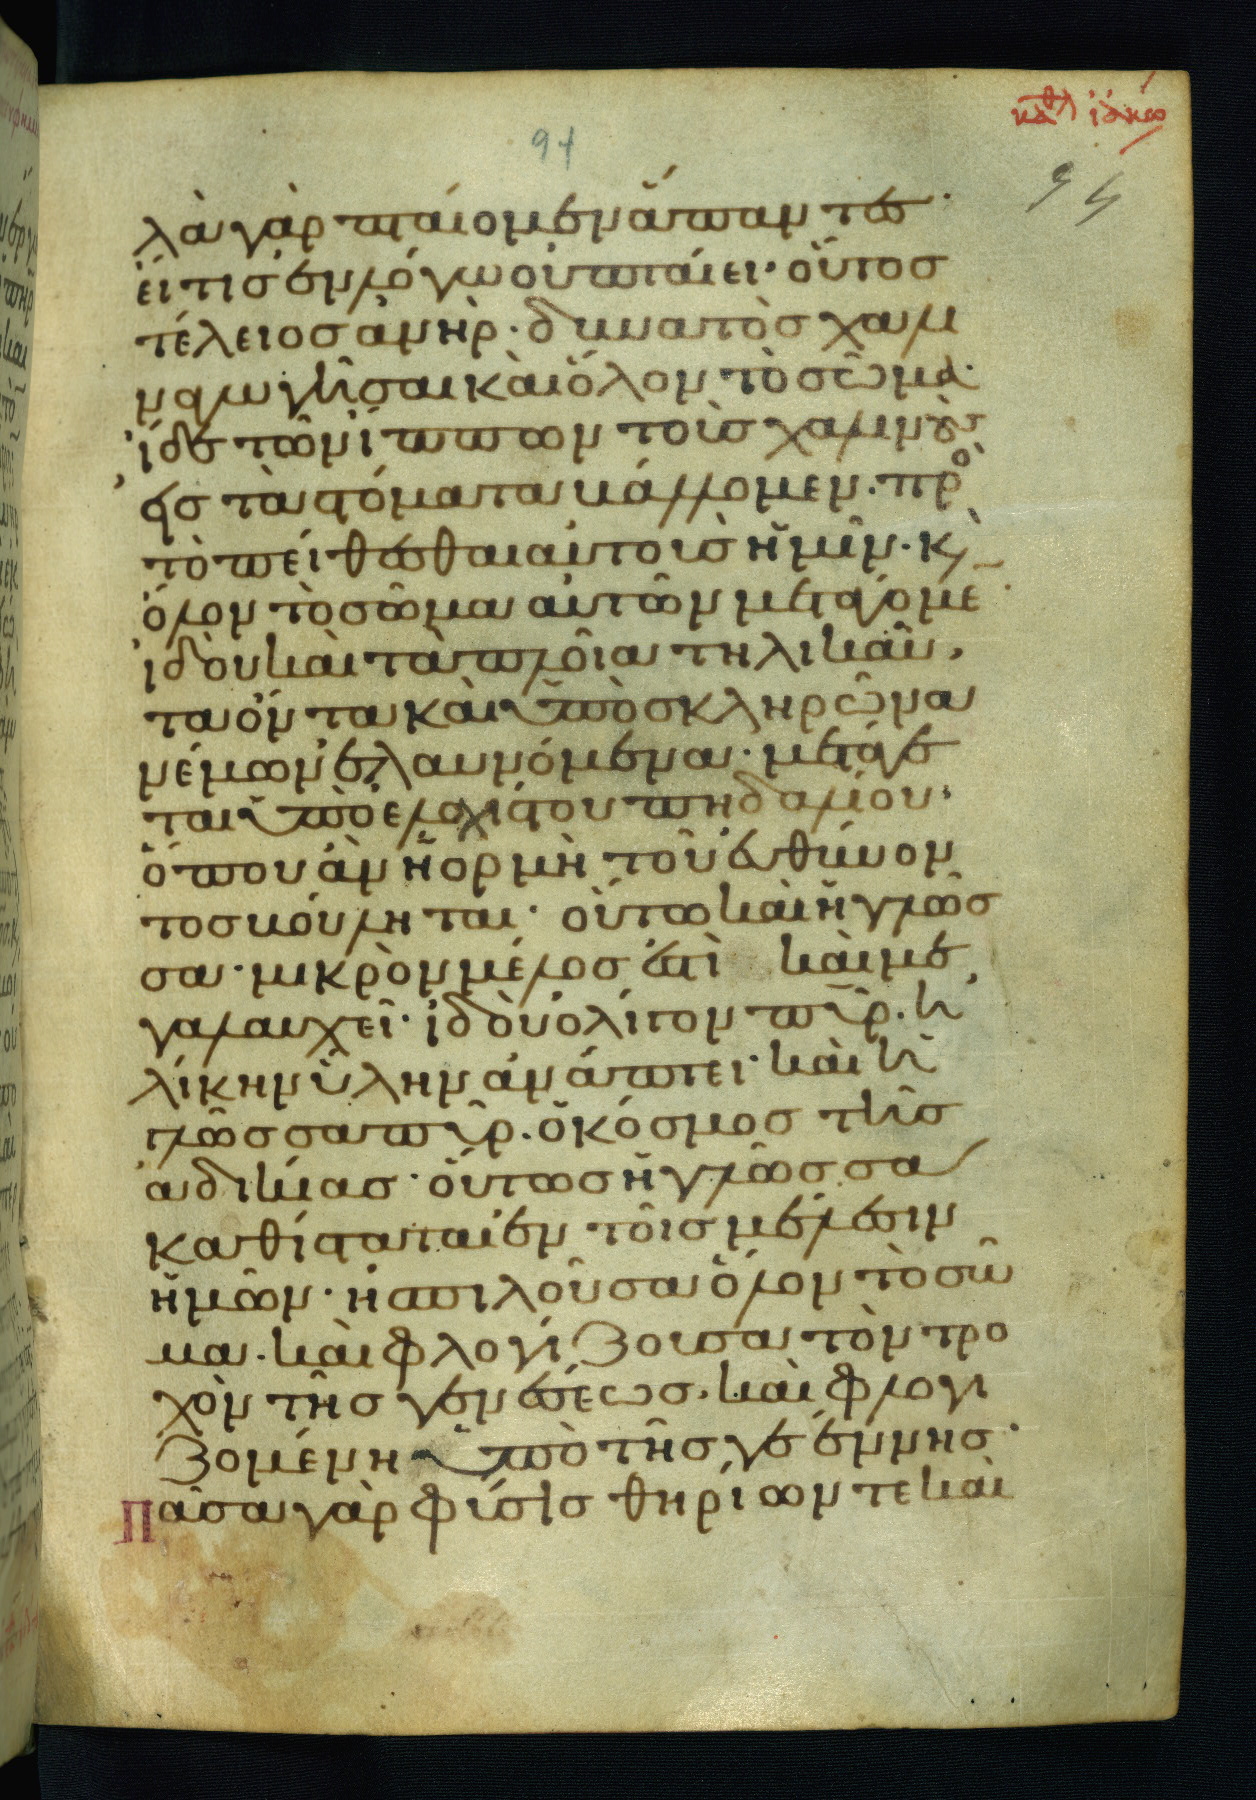 καθλ ἰακώ
91
94
λὰ γὰρ πταίομεν ἅπαντες·
εἴ τις ἐν λόγω οὐ πταίει· οὗτος
τέλειος ἀνὴρ· δυνατὸς χαλι
ναγωγῆσαι καὶ ὅλον τὸ σῶμα·
ἴδε τῶν ἵππων τοὺς χαλινοὺς
εἰς τὰ στόματα βάλλομεν· πρὸ
τὸ πείθεσθαι αὐτοὺς ἡμῖν· κ
ὅλον τὸ σῶμα αὐτῶν μετάγομε
ἰδοὺ καὶ τὰ πλοῖα τηλικαῦ
τα ὄντα καὶ ὑπὸ σκληρῶν ἀ
νέμων ἐλαυνόμενα· μετάγε
ται ὑπὸ ἐλαχίστου πηδαλίου·
ὅπου ἂν ἡ ὁρμὴ τοῦ εὐθύνον
τος βούληται· οὕτω καὶ ἡ γλῶσ
σα· μικρὸν μέλος ἐστὶ καὶ με
γαλαυχεῖ· ἰδοὺ ὀλίγον πῦρ· ἡ
λίκην ὕλην ἀνάπτει· καὶ ἡ
γλῶσσα πῦρ· ὁ κόσμος τῆς
ἀδικίας· οὕτως ἡ γλῶσσα
καθίσταται ἐν τοῖς μέλεσιν
ἡμῶν· ἡ σπιλοῦσα ὅλον τὸ σῶ
μα· καὶ φλογίζουσα τὸν τρο
χὸν τῆς γενέσεως· καὶ φλογι
ζομένη ὑπὸ τῆς γεέννης·
Πᾶσα γὰρ φύσις θηρίων τε καὶ